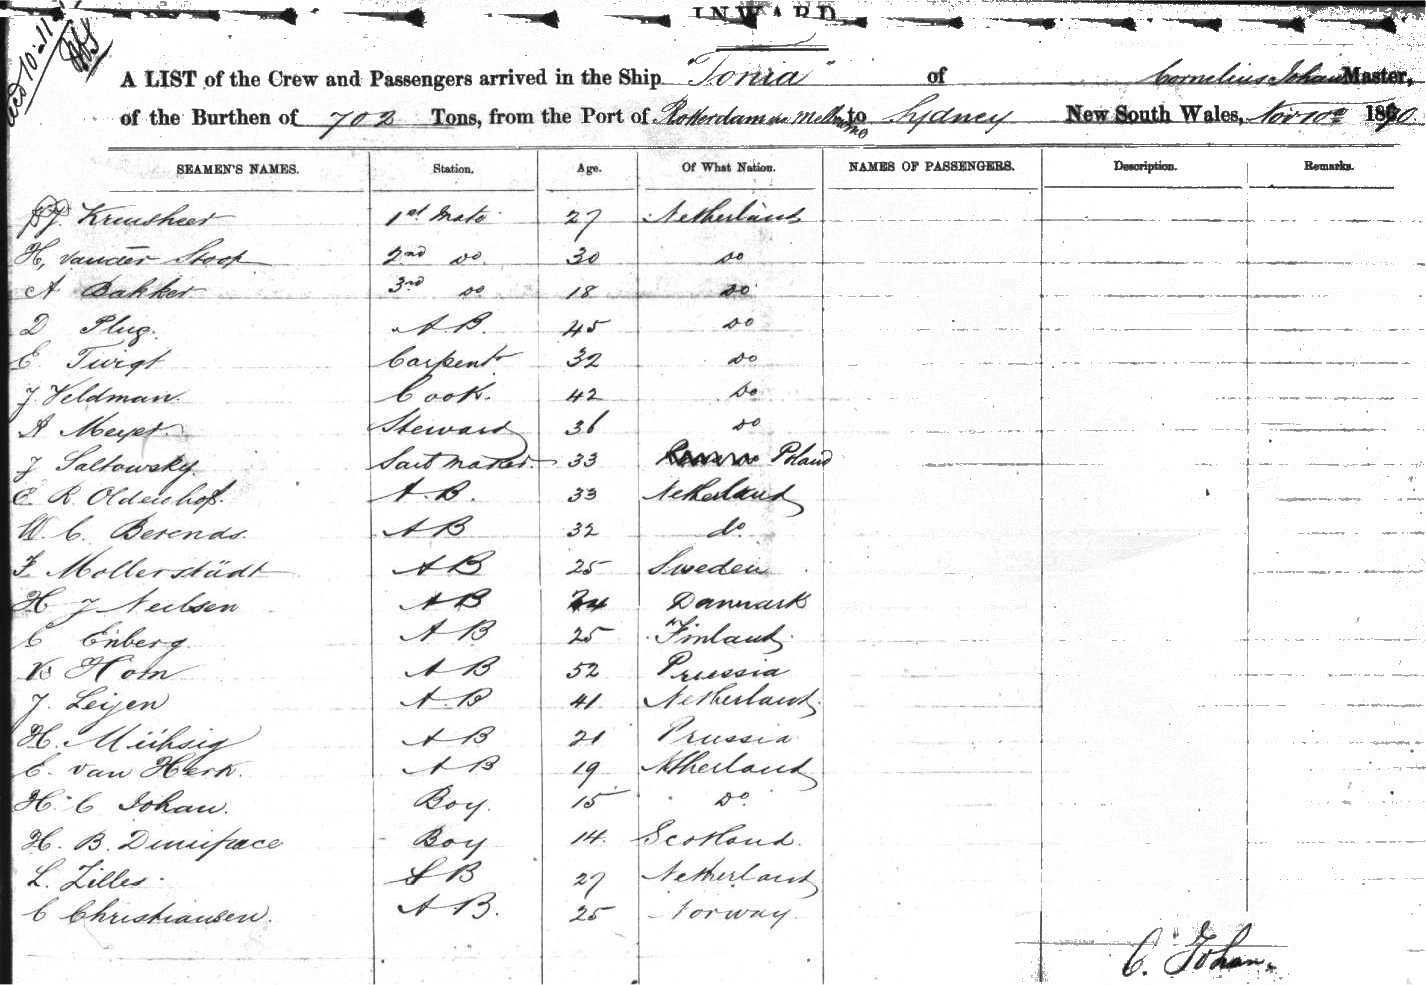 INWARD
A LIST of the Crew and Passengers arrived in the Ship "Tonia" of Cornelius Johan Master,
of the Burthen of 703 Tons, from the Port of Rotterdam via Melbourne to Sydney New South Wales, Nov 10th 1870.
SEAMEN'S NAMES. Station. Age. Of What Nation. NAMES OF PASSENGERS. Description. Remarks.
J. Kruisheer 1st Mate 27 Netherland
H, van der Stoop 2nd do 30 do
A Bakker 3rd do 18 do
D Plug. A.B. 45 do
E Twigt Carpentr 32 do
J. Veldman Cook. 42 do
A Meyer Steward 36 do
J Saltowsky. Sailmaker. 33 Poland
C R. Oldenhof. A.B. 33 Netherland
W. C. Berends. AB 32 do
F Mollerstüdt AB 25 Sweden
H J Neilsen AB 24 Danmark
C Enberg AB 25 Finland
Horn AB 52 Prussia
J. Leijen A.B 41 Netherland
H. Mühsig AB 21 Prussia
C. van Herk. AB 19 Netherland
H. C Johan. Boy. 15 do
H. B. Boy 14. Scotland.
L. Zilles. AB 27 Netherland
C Christiansen. AB. 25 Norway
C. Johan.